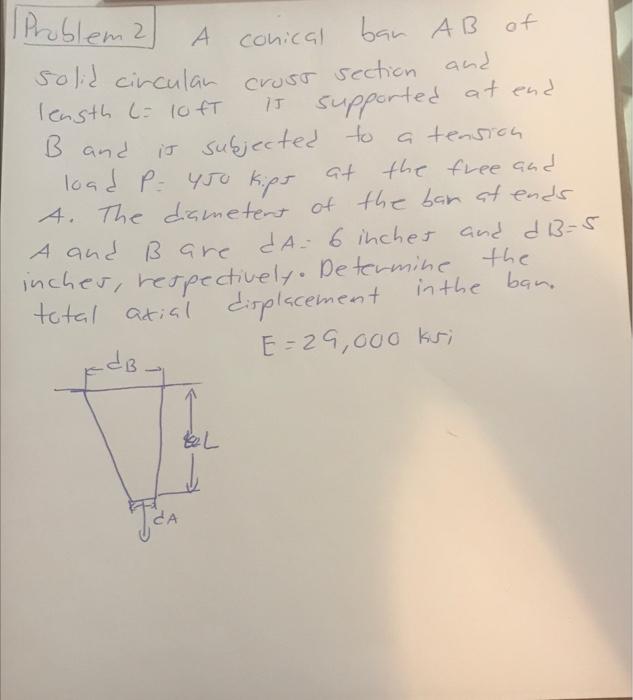 Problem 2 A conical bar AB of
solid circular cross section and
length L= 10 FT is supported at end
B and is subjected to a tension
load P= 450 kips at the free and
A. The diameters of the bar at ends
A and B are dA= 6 inches and dB=5
inches, respectively. Determine the
total axial displacement in the bar.
E = 29,000 ksi
dB
L
dA